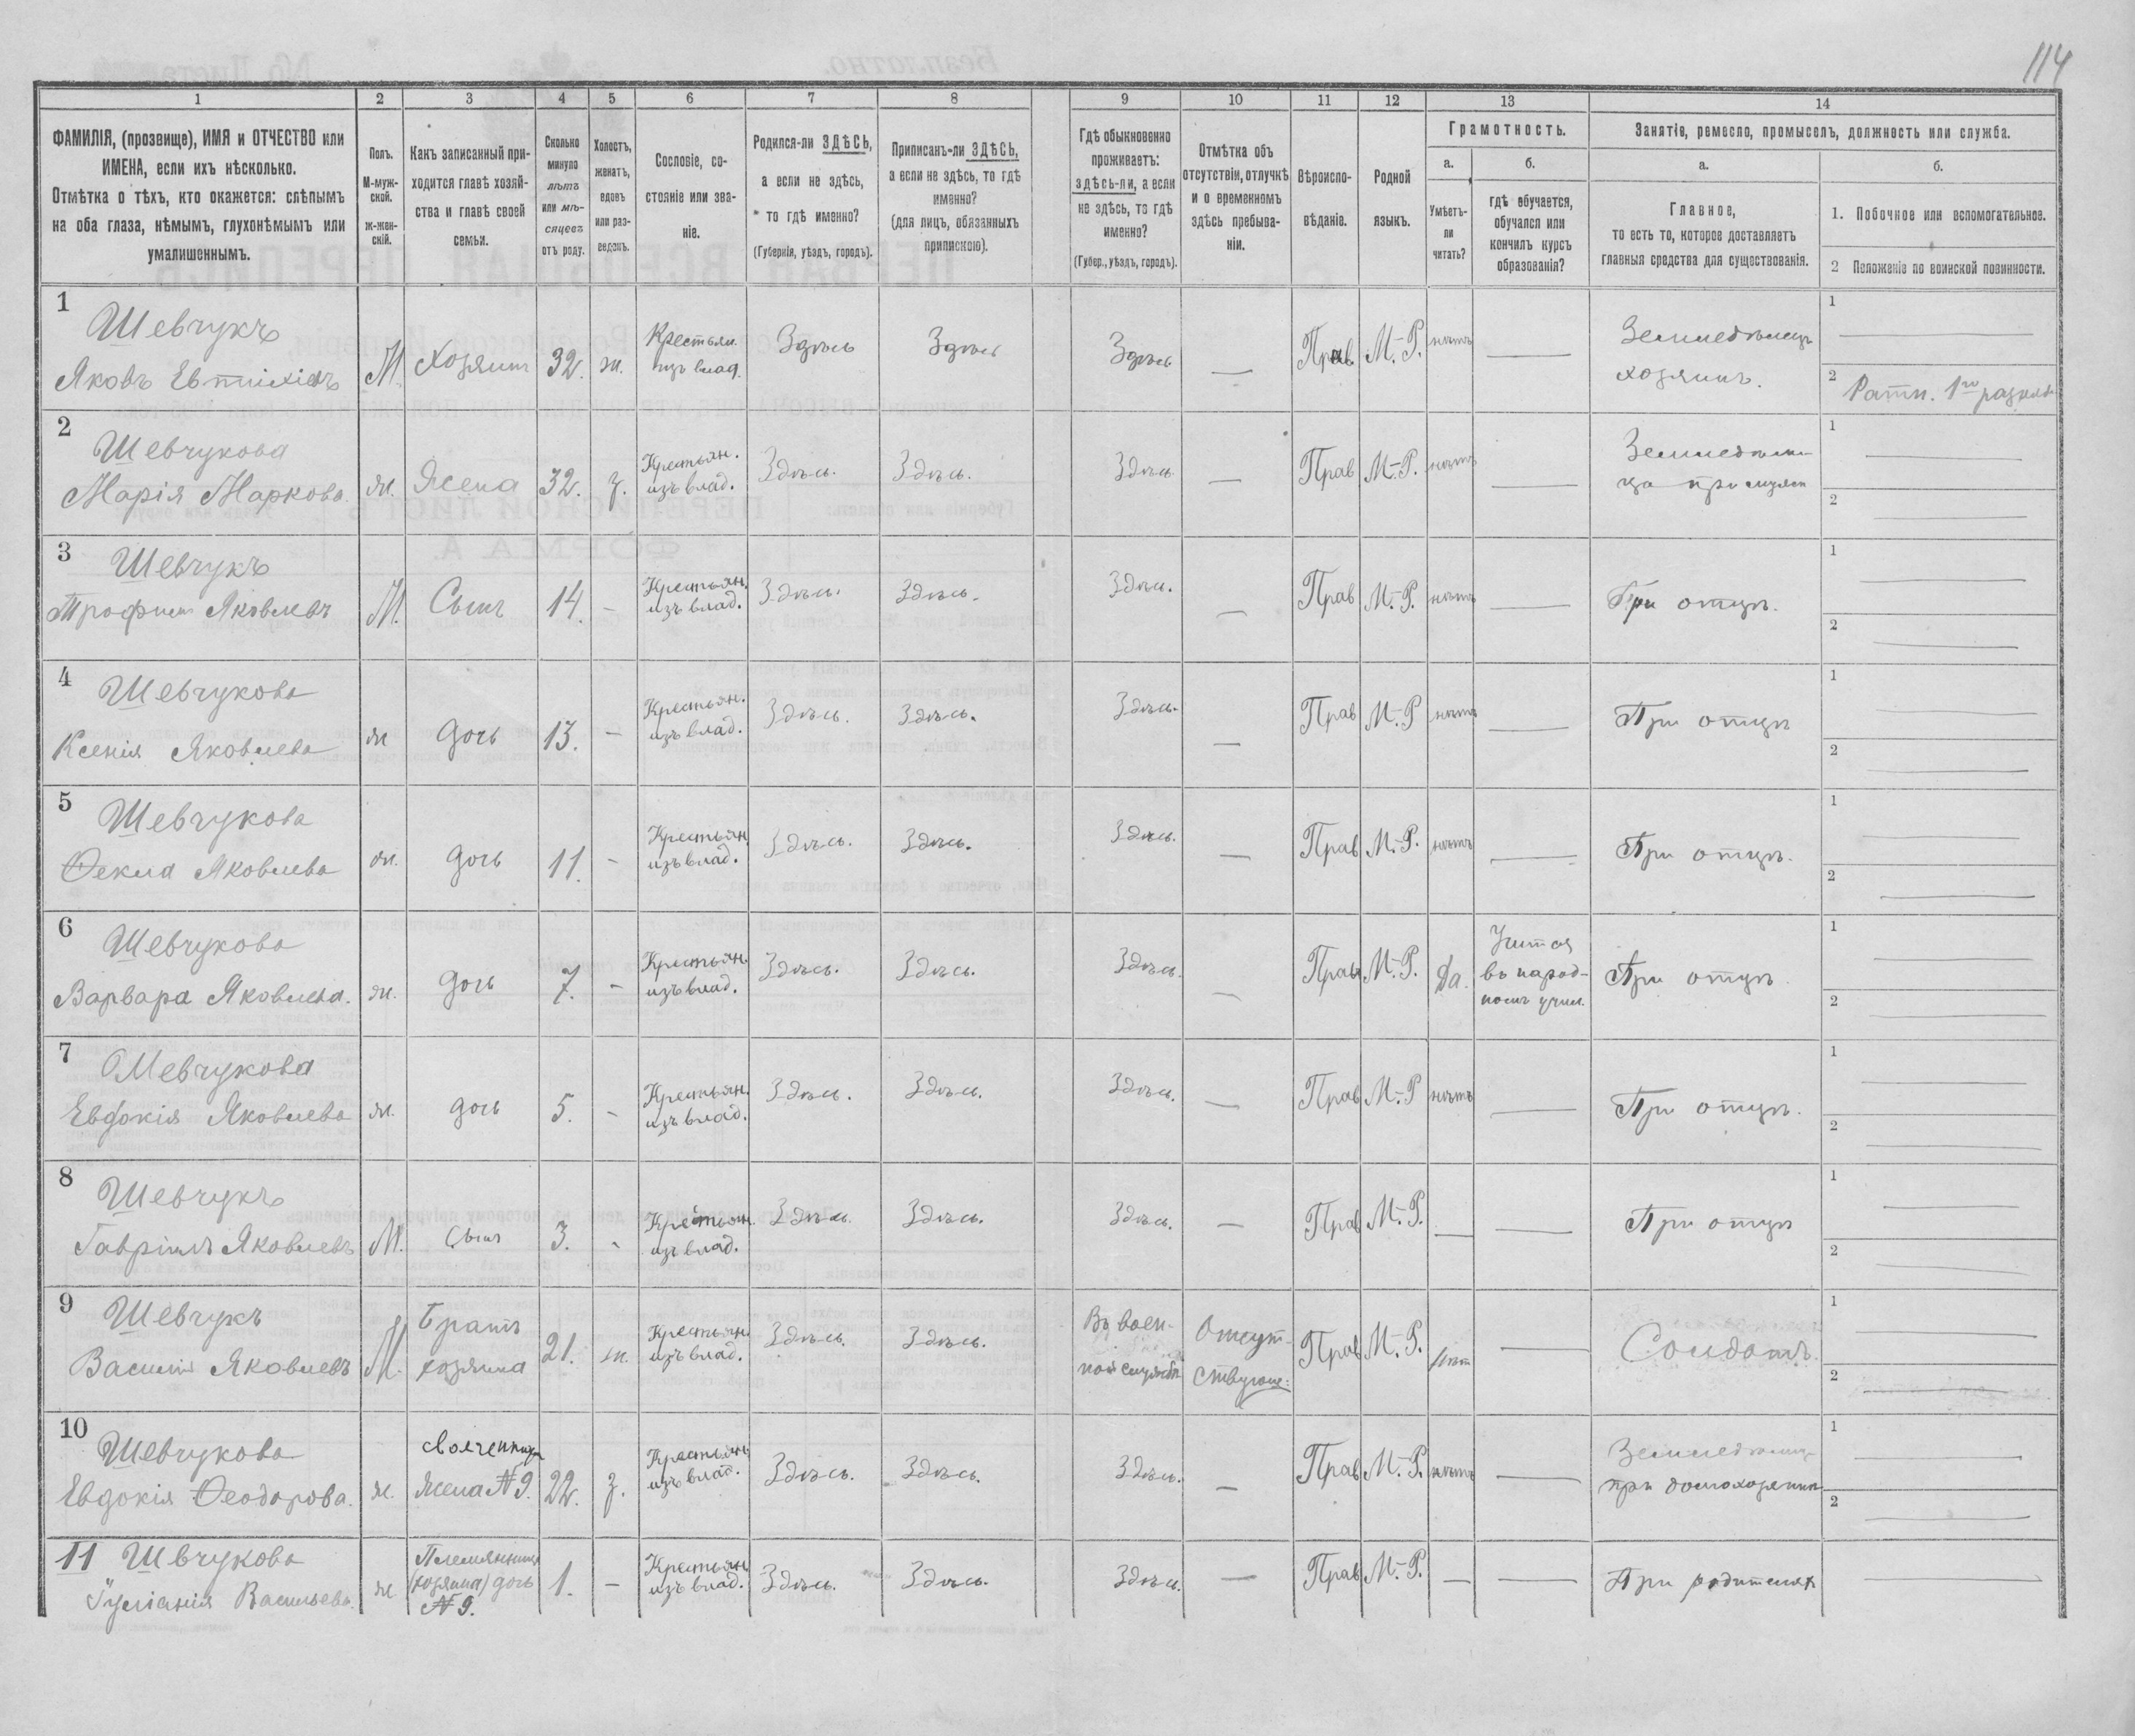 114
1
2
3
4
5
6
7
8
9
10
11
12
13
14
ФАМИЛІЯ, (прозвище), ИМЯ и ОТЧЕСТВО или
ИМЕНА, если ихъ нѣсколько.
Отмѣтка о тѣхъ, кто окажется: слѣпымъ
на оба глаза, нѣмымъ, глухонѣмымъ или
умалишеннымъ.
Полъ.
М-муж-
ской.
ж-жен-
скій.
Какъ записанный при-
ходится главѣ хозяй-
ства и главѣ своей
семьи.
Сколько
минуло
лѣтъ
или мѣ-
сяцевъ
отъ роду.
Холостъ,
женатъ,
вдовъ
или раз-
веденъ.
Сословіе, со-
стояніе или зва-
ніе.
Родился-ли ЗДѢСЬ,
а если не здѣсь,
то гдѣ именно?
(Губернія, уѣздъ, городъ).
Приписанъ-ли ЗДѢСЬ,
а если не здѣсь, то гдѣ
именно?
(для лицъ, обязанныхъ
припискою).
Гдѣ обыкновенно
проживаетъ:
здѣсь-ли, а если
не здѣсь, то гдѣ
именно?
(Губер., уѣздъ, городъ).
Отмѣтка объ
отсутствіи, отлучкѣ
и о временномъ
здѣсь пребыва-
ніи.
Вѣроиспо-
вѣданіе.
Родной
языкъ.
Грамотность.
а.
Умѣетъ-
ли
читать?
б.
гдѣ обучается,
обучался или
кончилъ курсъ
образованія?
Занятіе, ремесло, промыселъ, должность или служба.
а.
Главное,
то есть то, которое доставляетъ
главныя средства для существованія.
б.
1. Побочное или вспомогательное.
2 Положеніе по воинской повинности.
1
Шевчукъ
Яковъ Евтихіевъ
М.
Хозяинъ
32.
ж.
Крестьян.
изъ влад.
Здѣсь
Здѣсь
Здѣсь
—
Прав
М.-Р.
нѣтъ
—
Земледѣлецъ
хозяинъ.
1
—
2
Ратн. 1го разряда
2
Шевчукова
Марія Маркова.
ж.
Жена
32.
з.
Крестьян.
изъ влад.
Здѣсь.
Здѣсь.
Здѣсь
—
Прав
М.-Р.
нѣтъ
—
Земледѣли
ца при мужѣ
1
—
2
—
3
Шевчукъ
Трофим Яковлевъ
М.
Сынъ
14.
–
Крестьян.
изъ влад.
Здѣсь.
Здѣсь.
Здѣсь.
—
Прав
М.-Р.
нѣтъ
—
При отцѣ.
1
—
2
—
4
Шевчукова
Ксенія Яковлева
ж
дочь
13.
–
Крестьян.
изъ влад.
Здѣсь.
Здѣсь.
Здѣсь.
—
Прав
М.-Р
нѣтъ
—
При отцѣ
1
—
2
—
5
Шевчукова
Ѳекла Яковлева
ж.
дочь
11.
–
Крестьян
изъ влад.
Здѣсь.
Здѣсь.
Здѣсь.
—
Прав
М.-Р.
нѣтъ
—
При отцѣ.
1
—
2
—
6
Шевчукова
Варвара Яковлева.
ж.
дочь
7.
–
Крестьян.
изъ влад.
Здѣсь.
Здѣсь.
Здѣсь.
—
Прав
М.-Р.
Да.
Учится
въ народ-
номъ учил.
При отцѣ.
1
—
2
—
7
Шевчукова
Евдокія Яковлева
ж.
дочь
5.
–
Крестьян.
изъ влад.
Здѣсь.
Здѣсь.
Здѣсь.
—
Прав
М.-Р
нѣтъ
—
При отцѣ.
1
—
2
—
8
Шевчукъ
Гавріилъ Яковлевъ
М.
Сынъ
3.
–
Крестьян.
изъ влад.
Здѣсь.
Здѣсь.
Здѣсь.
—
Прав
М.-Р.
—
—
При отцѣ
1
—
2
—
9
Шевчукъ
Василій Яковлевъ
М.
Братъ
хозяина
21.
ж.
Крестьян.
изъ влад.
Здѣсь.
Здѣсь.
Въ воен-
ной службѣ
Отсут-
ствующ:
Прав
М.-Р.
нѣт
—
Солдатъ.
1
—
2
—
10
Шевчукова
Евдокія Ѳеодорова.
ж.
свояченица
Жена №9.
22.
з.
Крестьян.
изъ влад.
Здѣсь.
Здѣсь.
Здѣсь.
—
Прав
М.-Р.
нѣтъ
—
Земледѣлица
при домохозяинѣ
1
—
2
—
11
Швчукова
Іуліанія Васильева.
ж
Племянница
(хозяина) дочь
№ 9.
1.
–
Крестьян
изъ влад.
Здѣсь.
Здѣсь.
Здѣсь.
—
Прав
М.-Р.
—
—
При родителях
—